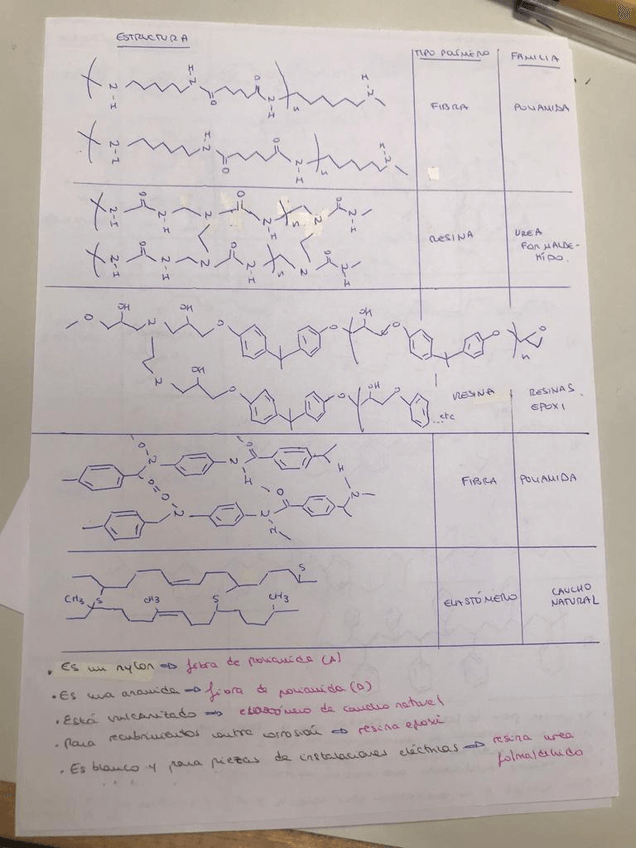 ESTRUCTURA
TIPO POLÍMERO
FAMILIA
FIBRA
POLIAMIDA
RESINA
UREA
FORMALDE-
HÍDO.
RESINA
RESINAS
EPOXI
...etc
FIBRA
POLIAMIDA
CH3
CH3
CH3
S
S
S
ELASTÓMERO
CAUCHO
NATURAL
. Es un nylon ⇒ fibra de poliamida (A)
. Es una aramida ⇒ fibra de poliamida (B)
. Está vulcanizado ⇒ elastómero de caucho natural
. Para recubrimientos contra corrosión ⇒ resina epoxi
. Es blanco y para piezas de instalaciones eléctricas ⇒ resina urea